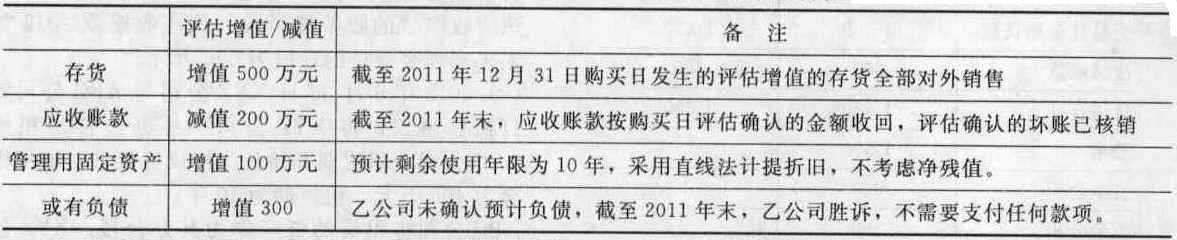 评估增值/减值 备 注
存货 增值 500 万元 截至 2011 年 12 月 31 日购买日发生的评估增值的存货全部对外销售
应收账款 减值 200 万元 截至 2011 年末，应收账款按购买日评估确认的金额收回，评估确认的坏账已核销
管理用固定资产 增值 100 万元 预计剩余使用年限为 10 年，采用直线法计提折旧，不考虑净残值。
或有负债 增值 300 乙公司未确认预计负债，截至 2011 年末，乙公司胜诉，不需要支付任何款项。